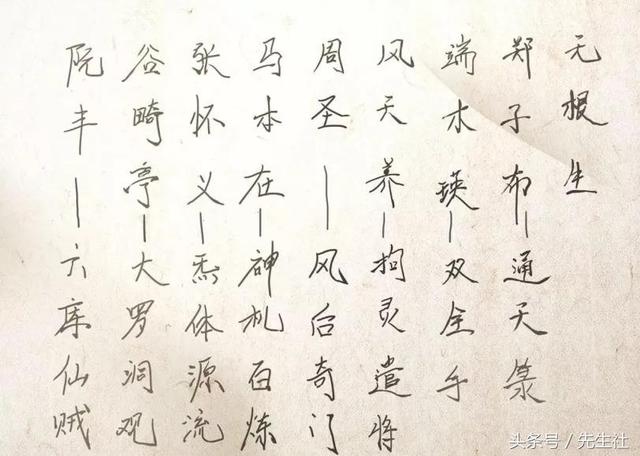 无根生
郑子布—通天箓
端木瑛—双全手
风天养—拘灵遣将
周圣—风后奇门
马本在—神机百炼
张怀义—炁体源流
谷畸亭—大罗洞观
阮丰—六库仙贼
头条号/先生社